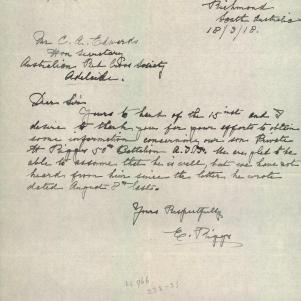 Richmond
South Australia
18/3/18.
Mr C. A. Edwards
Hon Secretary
Australian Red Cross Society
Adelaide.
Dear Sir
Yours to hand of the 15 inst and I
desire to thank you for your efforts to obtain
some information concerning our son Private
50th Battalion A.I.F. We are glad to be
able to assume that he is well, but we have not
heard from him since the letter he wrote
dated August 8th last.
Yours Respectfully
E.